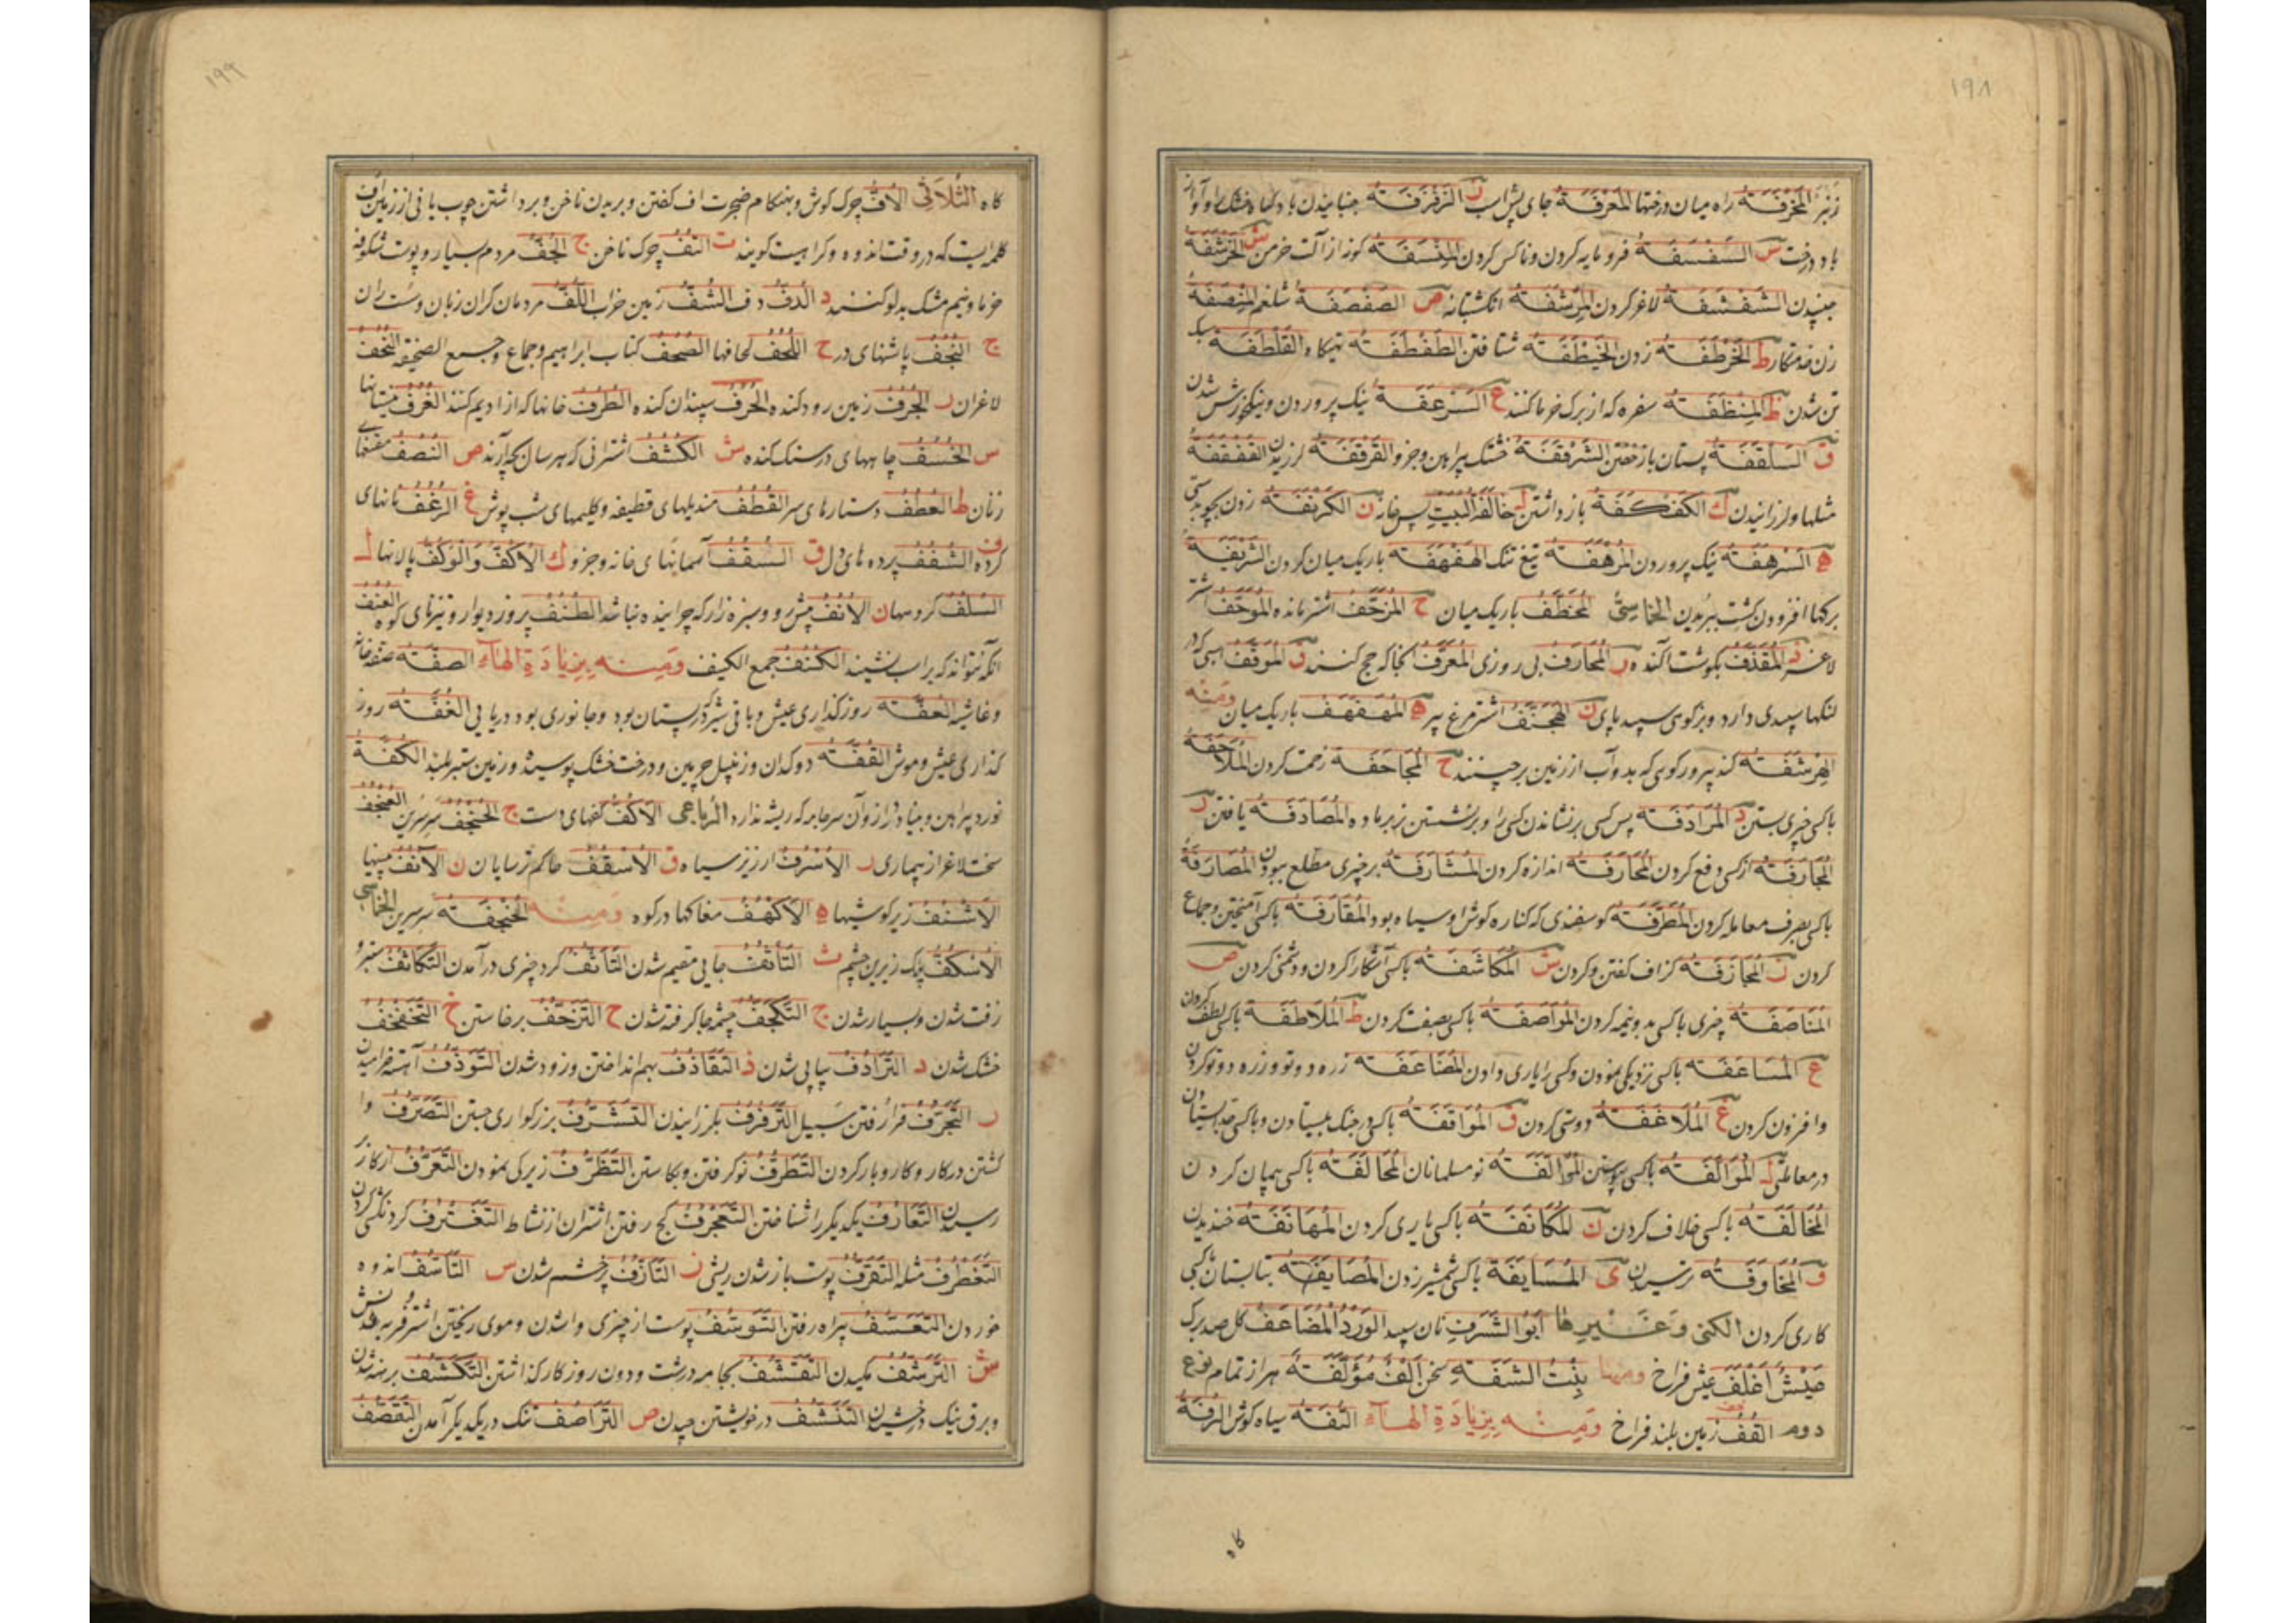 ١٩٨
المخرفة راه میان درختها المغرفة جای پیشراب ز الزفزفة جنبانیدن باد گیاه خشک را و آواز
باد درخت س السفسفة فرومایه کردن و ناکس کردن المنسفة کوز از آلت خرمن ش الخرشفة
جنبیدن الشفشفة لاغر کردن المرشفة انکشتانه ص الصفصفة شلغم المنصفة
زن خدمتکار ط الخرطفة زدن الخیطفة شتافتن الطفطفة تهیکاه القلطفة سبک
تن شدن ظ المنظفة سفره که از برک خرما کنند ع السرعفة نیک پروردن و نیکو خورش شدن
ق السلقفة بستان باز خفتن الشرقفة خشتک پیراهن وجزو القرقفة لرزیدن القفقفة
مثلها ولرزانیدن ك الکفکفة باز داشتن ل خالفة البیت پس خانه ن الکرنفة زدن بچوب دستی
ه السرهفة نیک پروردن المرهفة تیغ تنک الهفهفة باریک میان کردن الشریفة
برکها افزودن کشت ببریدن الخماسی المخطف باریک میان ح المزحف اشتر مانده الموحف اشتر
لاغر ذ المقذف بکوشت آکنده ر المحارف بی روزی المعرف آنجا که حج کنند ق الموقف اسبی که در
لنکها سپیدی دارد وبزکوهی سپید پای ن الهجنف اشترمرغ پیر ه المهفهف باریک میان ومنه
الهرشفة کنده پیر ورکوی که بدو آب از زمین برچینند ح المجاحفة زحمت کردن الملاحفة
باکسی چیزی بستن د المرادفة پس کسی برنشاندن کسی را وبرنشستن نر بر ماده المصادفة یافتن ر
المجارفة از کسی دفع کردن المحارفة اندازه کردن المشارفة بر چیزی مطلع ببودن المصارفة
باکسی بصرف معامله کردن المطرفة کوسفندی که کناره کوش او سیاه بود المقارفة باکسی آمیختن وجماع
کردن ز المجازفة کزاف کفتن وکردن ش المکاشفة باکسی آشکارا کردن ودشمنی کردن ص
المناصفة چیزی باکسی بدو نیمه کردن المواصفة باکسی بصفت کردن ط الملاطفة باکسی لطف کردن
ع المساعفة باکسی نزدیکی نمودن وکسی را یاری دادن المضاعفة زره دو تو وزره دو تو کردن
وافزون کردن غ الملاغفة دوستی کردن ق المواقفة باکسی در جنک بیستادن وباکسی بیستادن
در معاملتی ل الموالفة باکسی پیوستن المؤالفة نو مسلمانان المحالفة باکسی همپان کردن
المخالفة باکسی خلاف کردن ن المکانفة باکسی یاری کردن المهانفة خندیدن
و المخاوفة ترسیدن ی المسایفة باکسی شمشیر زدن المصایفة بتابستان باکسی
کاری کردن الکنی وغیرها ابو الشرف نان سپید الورد المضاعف کل صد برک
عیش اغلف عیش فراخ ومنها بنت الشفة سخن الف مؤلفة هزار تمام نوع
دوم القف زمین بلند فراخ ومنه بزیادة الهاء التفة سیاه کوش الرفة
کاه
١٩٩
کاه الثلاثی الاف چرک کوش وبهنکام ضجرت اف کفتن وبریدن ناخن وبرداشتن چوب یا نی از زمین اف
کلمه ایست که در وقت اندوه وکراهیت کویند ت التف چرک ناخن ج الجف مردم بسیار وپوست شکوفه
خرما ونیم مشک بدلو کنند د الدف دف الشف زمین خراب اللف مردمان کران زبان وست ران
ج النجف پاشنهای در ح اللحف لحافها الصحف کتاب ابراهیم وجماع وجمع الصحیفة النحف
لاغران ر الجرف زمین رود کنده الحرف سپندان کنده الطرف خانها که از ادیم کنند الغرف
س الخسف چاههای در سنک کنده ش الکشف اشترانی که هر سال بچه آرند ص النصف مقنعهای
زنان ط العطف دستارهای سر القطف مندیلهای قطیفه وکلیمهای شب پوش غ الرغف نانهای
کرده ف الشغف پرده های دل ق السقف آسمانهای خانه وجزو ك الاکف والوکف پالانها ل
السلف کردمها ن الانف پیش رو وسبزه زار که چرانیده نباشد الطنف پروز دیوار وتیزنای کوه العنف
آنکه نتواند که بر اسب نشیند الکنف جمع الکنیف ومنه بزیادة الهاء الصفة صفه خانه
وغاشیه العفة روزکذاری عیش وباقی شیر که در پستان بود وجانوری بود دریایی الغفة روز
کذاری عیش وموش القفة دوکدان وزنبیل چرمین ودرخت خشک پوسیده وزمین ستبر بلند الکفة
نورد پیراهن وبنیاد وآن سر جامه که ریشه ندارد الرباعی الاکف کفهای دست ج الحنجف سر سرین العنجف
سخت لاغر از بیماری ر الاسرف ارزیز سیاه ق الاسقف حاکم ترسایان ن الآنف بینیها
الاشنف زبر کوشیها ه الاکهف مغاکها در کوه ومنه الحنجفة سر سرین الخماسی
الاسکف پلک زیرین چشم ث التأثف جایی مقیم شدن التأثف کرد چیزی در آمدن التکاثف ستبر
زفت شدن وبسیار شدن ج التکجف چشمه جا کرفته شدن ح التزحف برخاستن خ التخفخف
خشک شدن د الترادف پیاپی شدن ذ التقاذف بهم انداختن وزود شدن التوذف آهسته خرامیدن
ر التجرف فرا رفتن سبیل الترفرف بلرزانیدن التشرف بزرکواری جستن التصرف وا
کشتن در کار وکار وبار کردن التطرف نو کرفتن وبکاستن التظرف زیرکی نمودن التعرف از کار بر
رسیدن التعارف یکدیکر را شناختن التعجرف کج رفتن اشتران از نشاط التغترف کردنکشی کردن
التغطرف مثله التقرف پوست باز شدن ریش ز التأزف پرخشم شدن س التأسف اندوه
خوردن التعسف بیراه رفتن التوسف پوست از چیزی وا شدن وموی ریختن اشتر فربه
ش الترشف مکیدن التقشف بجامه درشت ودون روزکار کذاشتن التکشف برهنه شدن
وبرق نیک درخشیدن التنشف در خویشتن چیدن ص التراصف تنک در یکدیکر آمدن التقصف